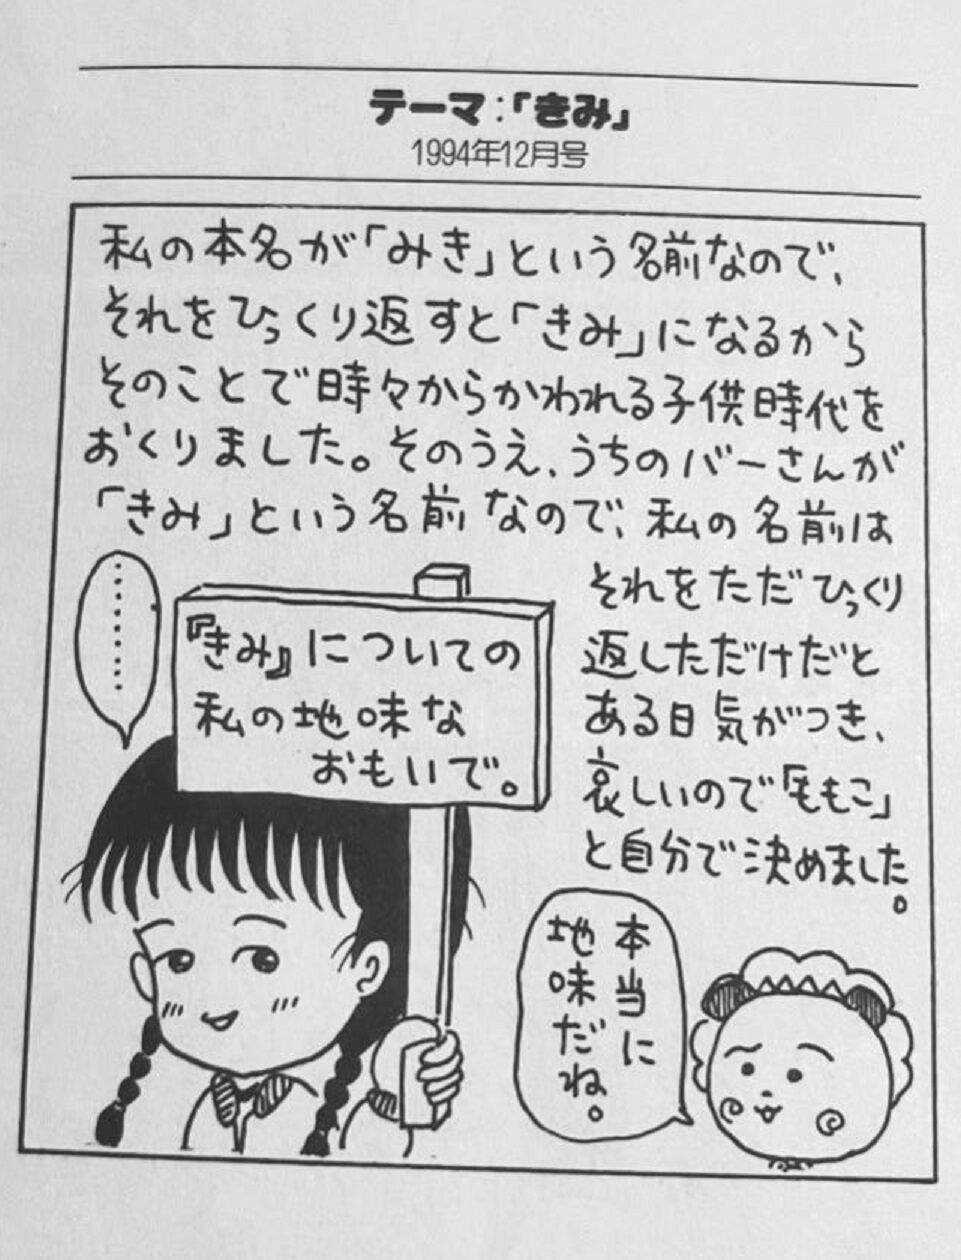 テーマ:「きみ」
1994年12月号
私の本名が「みき」という名前なので、
それをひっくり返すと「きみ」になるから
そのことで時々からかわれる子供時代を
おくりました。そのうえ、うちのバーさんが
「きみ」という名前なので、私の名前は
それをただひっくり
返しただけだと
ある日気がつき、
哀しいので「ももこ」
と自分で決めました。
………
『きみ』についての
私の地味な
おもいで。
本当に
地味だね。